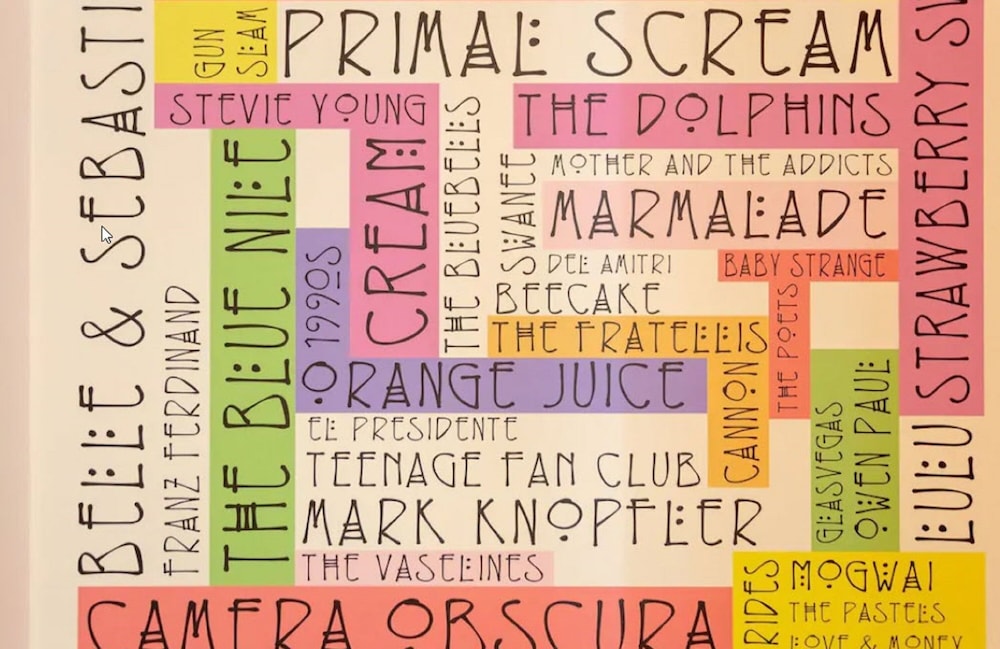 GUN
SLAM
PRIMAL SCREAM
STEVIE YOUNG
THE DOLPHINS
BELLE & SEBASTI
FRANZ FERDINAND
THE BLUE NILE
1990S
CREAM
THE BLUEBELLS
SWANEE
MOTHER AND THE ADDICTS
MARMALADE
DEL AMITRI
BABY STRANGE
BEECAKE
THE FRATELLIS
THE POETS
STRAWBERRY
ORANGE JUICE
CANNON
EL PRESIDENTE
TEENAGE FAN CLUB
MARK KNOPFLER
GLASVEGAS
OWEN PAUL
LULU
THE VASELINES
CAMERA OBSCURA
RIDES
MOGWAI
THE PASTELS
LOVE & MONEY